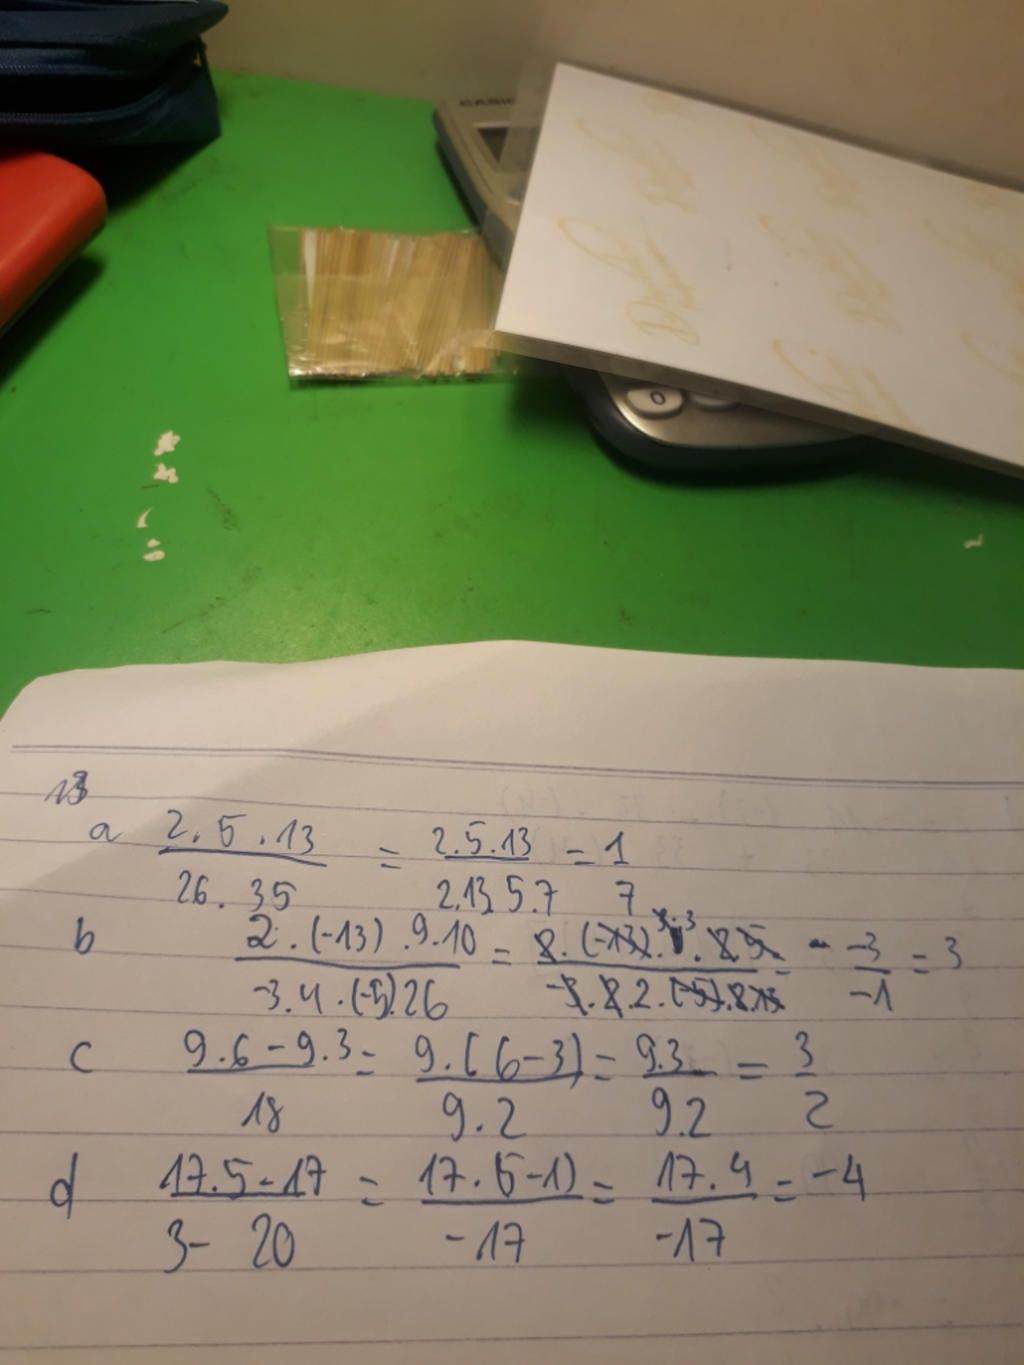 CASIO
0
13
a 2.5.13 / 26.35 = 2.5.13 / 2.13 5.7 = 1 / 7
b 2.(-13).9.10 / -3.4.(-5).26 = 2.(-13).3.3.2.5 / -3.2.2.(-5).2.13 = -3 / -1 = 3
c 9.6-9.3 / 18 = 9.(6-3) / 9.2 = 9.3 / 9.2 = 3 / 2
d 17.5-17 / 3- 20 = 17.(5-1) / -17 = 17.4 / -17 = -4